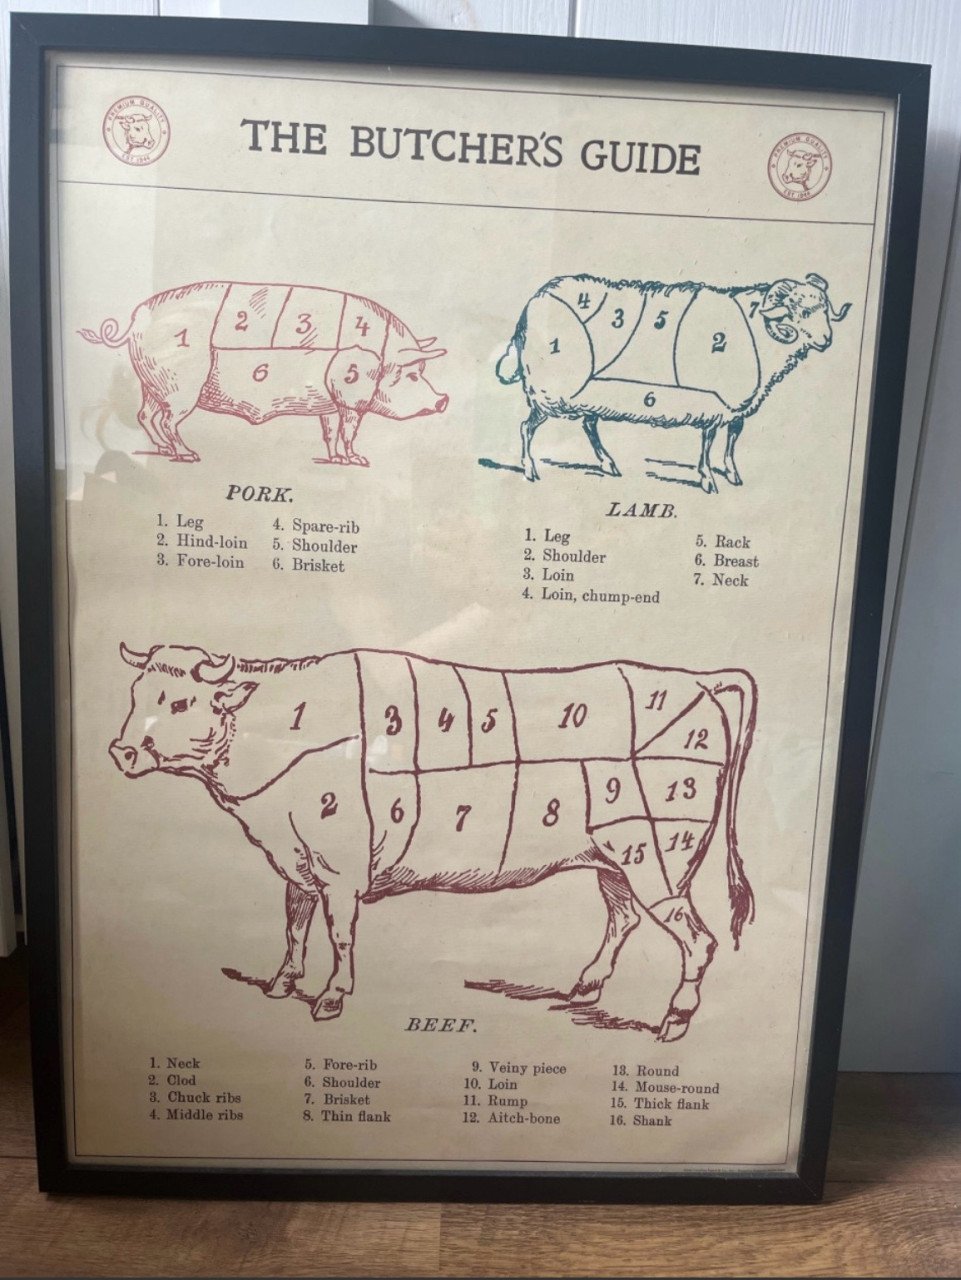 PREMIUM QUALITY
EST 1944
THE BUTCHER'S GUIDE
PREMIUM QUALITY
EST 1944
1 2 3 4 5 6
1 4 3 5 2 7 6
PORK.
1. Leg
2. Hind-loin
3. Fore-loin
4. Spare-rib
5. Shoulder
6. Brisket
LAMB.
1. Leg
2. Shoulder
3. Loin
4. Loin, chump-end
5. Rack
6. Breast
7. Neck
1 3 4 5 10 11 12
2 6 7 8 9 13
15 14
16
BEEF.
1. Neck
2. Clod
3. Chuck ribs
4. Middle ribs
5. Fore-rib
6. Shoulder
7. Brisket
8. Thin flank
9. Veiny piece
10. Loin
11. Rump
12. Aitch-bone
13. Round
14. Mouse-round
15. Thick flank
16. Shank